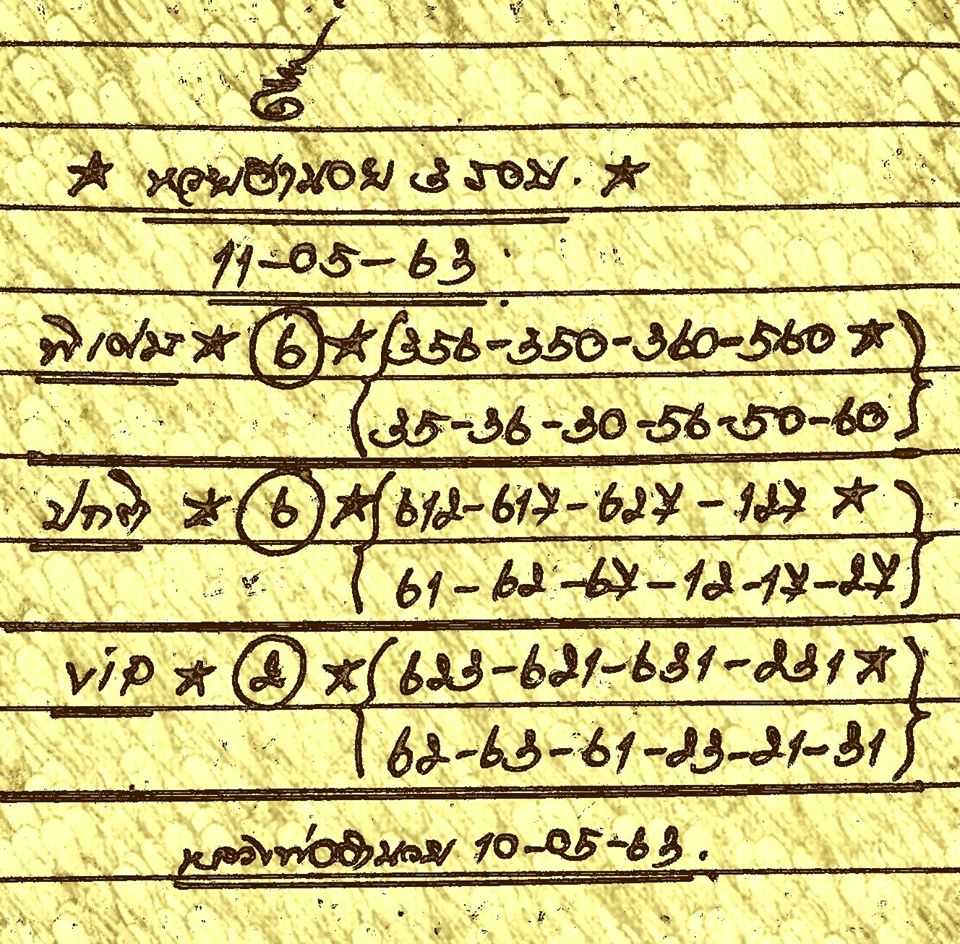 ★ หวยฮานอย 3 รอบ. ★
11-05-63.
พิเศษ ★ 6 ★ (356-350-360-560 ★)
(35-36-30-56-50-60)
ปกติ ★ 6 ★ (612-617-627-127 ★)
(61-62-67-12-17-27)
vip ★ 2 ★ (623-621-631-231 ★)
(62-63-61-23-21-31)
10-05-63.